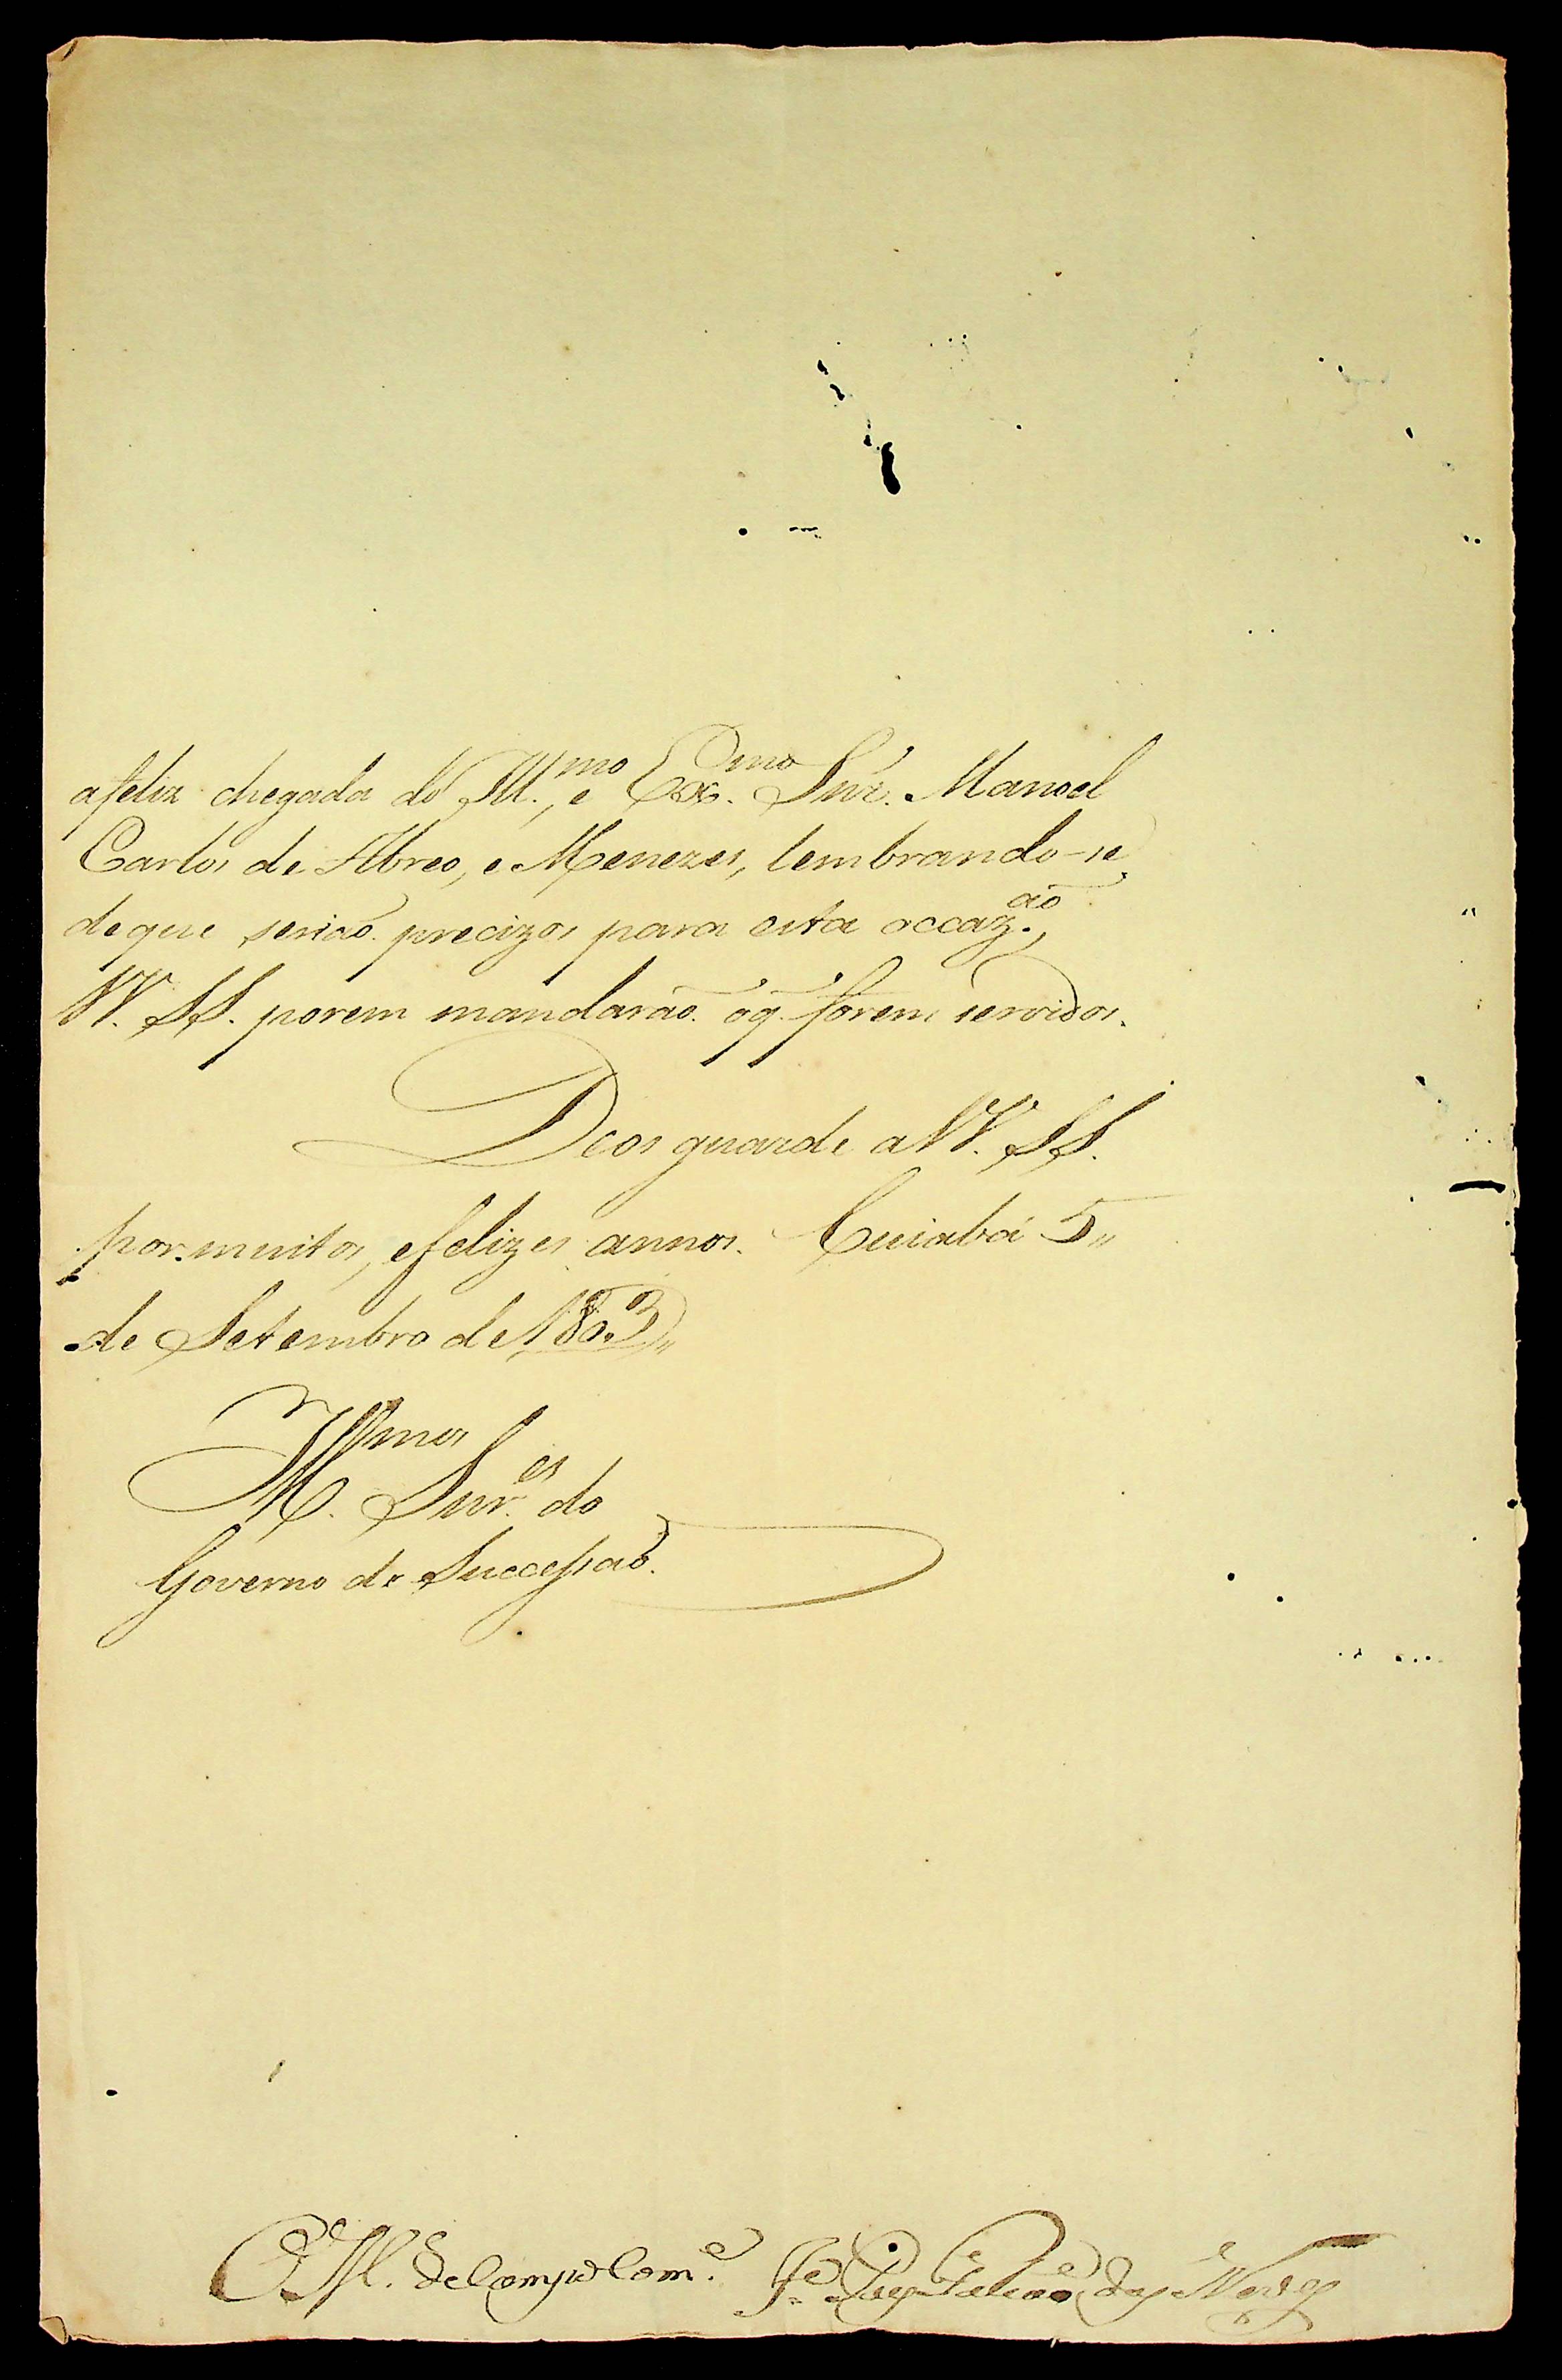 afeliz chegada do Ill.mo, e Ex.mo Snr. Manoel
Carlos de Abreo, e Menezes, lembrando-se
deque serião precizos para esta occaz.ão,
VV. SS. porem mandaráõ oq̃ forem servidos.
Deos guarde a VV. SS.
por muitos, efelizes annos. Cuiabá 5,,
de Setembro de 1803,,
Illmos
M. Snr.es do
Governo de Successão.
O M. de Campo Com.e Je Paes Falcão das Neves